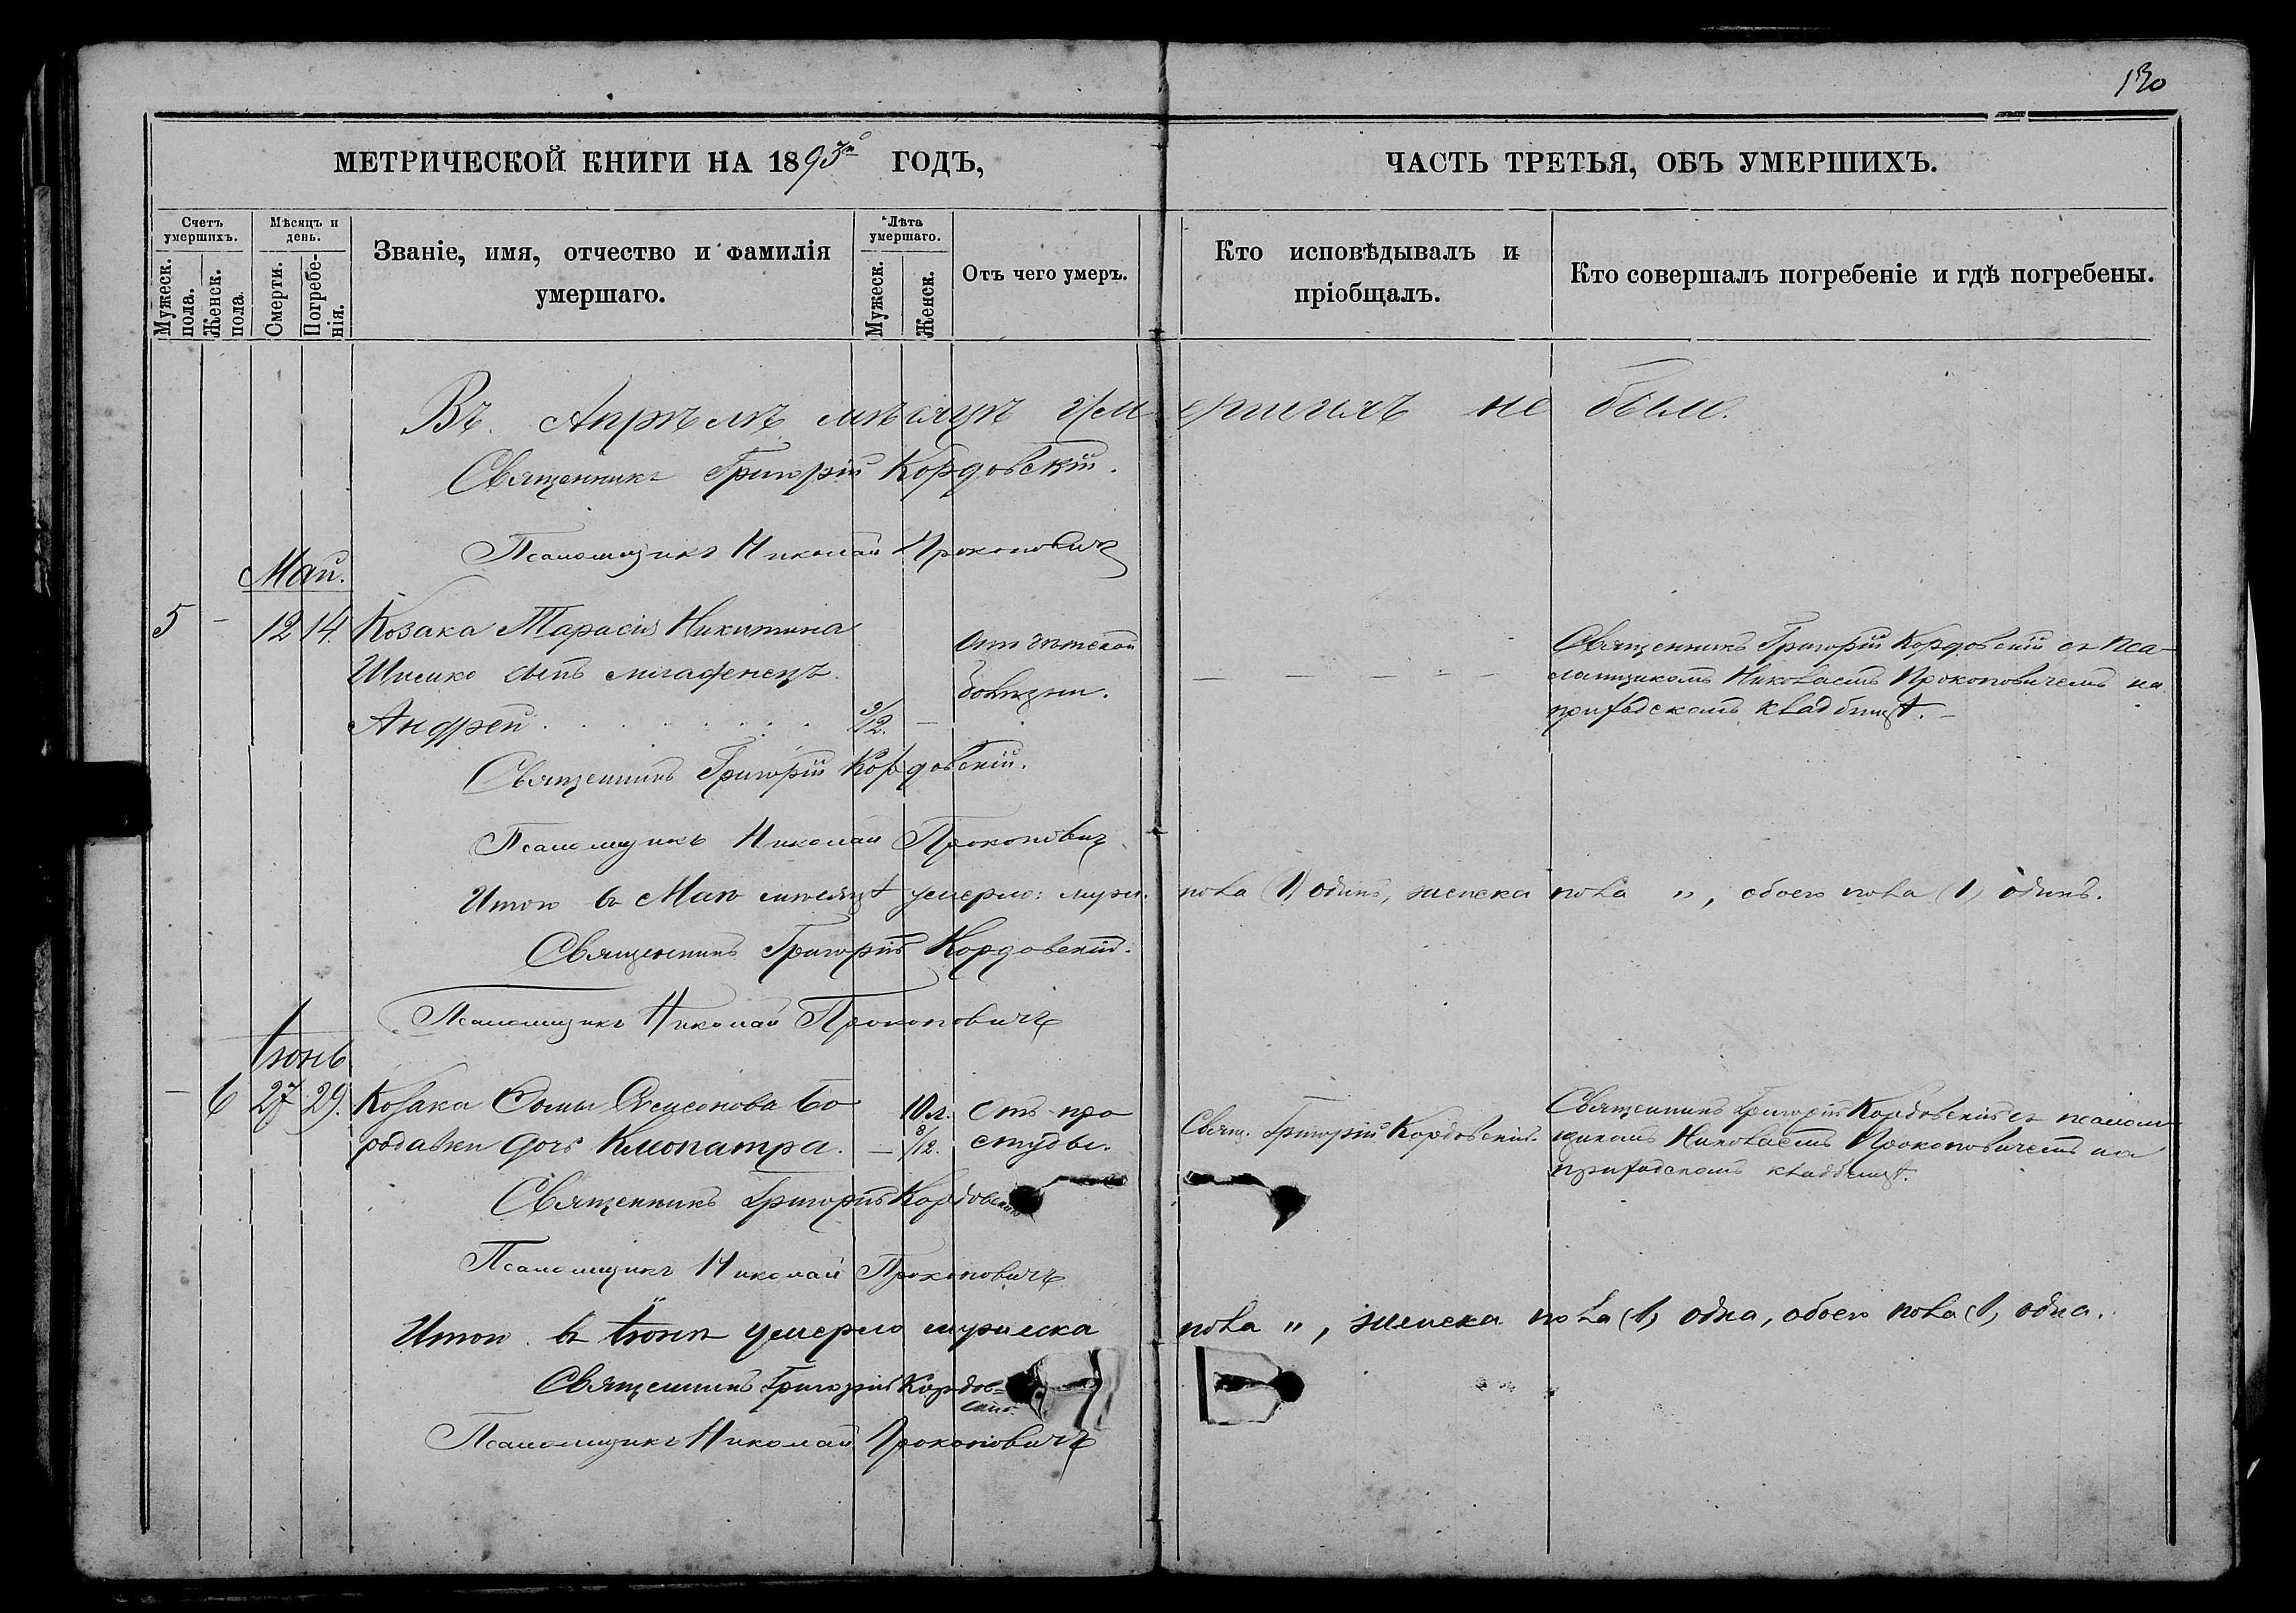 130
МЕТРИЧЕСКОЙ КНИГИ НА 1893й ГОДЪ,
ЧАСТЬ ТРЕТЬЯ, ОБЪ УМЕРШИХЪ.
Счетъ умершихъ.
Мужеск. пола.
Женск. пола.
Мѣсяцъ и день.
Смерти.
Погребенія.
Званіе, имя, отчество и фамилія
умершаго.
Лѣта умершаго.
Мужеск.
Женск.
Отъ чего умеръ.
Кто исповѣдывалъ и
пріобщалъ.
Кто совершалъ погребеніе и гдѣ погребены.
Въ Апрѣлѣ мѣсяцѣ умершихъ не было.
Священникъ Григорій Кордовскій.
Псаломщикъ Николай Прокоповичъ
Май.
5 - 12 14. Козака Тарасія Никитина
Шисико сынъ младенецъ
Андрей 9/12. -
Отъ дѣтской
болѣзни.
Священникъ Григорій Кордовскій съ Пса-
ломщикомъ Николаемъ Прокоповичемъ на
приходскомъ кладбищѣ.
Священникъ Григорій Кордовскій.
Псаломщикъ Николай Прокоповичъ
Итого въ Маѣ мѣсяцѣ умерло: муж. пола (1) одинъ, женска пола ", обоего пола (1) одинъ.
Священникъ Григорій Кордовскій.
Псаломщикъ Николай Прокоповичъ
Іюнь
- 6 27 29. Козака Сомы Бо
родавки дочь Клеопатра. - 10 л. 8/12.
Отъ про
студы.
Свящ. Григорій Кордовскій.
Священникъ Григорій Кордовскій съ псалом
щикомъ Николаемъ Прокоповичемъ на
приходскомъ кладбищѣ.
Священникъ Григорій Кордовскій
Псаломщикъ Николай Прокоповичъ
Итого въ Іюнѣ умерло мужеска пола ", женска пола (1) одна, обоего пола (1) одна.
Священникъ Григорій Кордов-
скій.
Псаломщикъ Николай Прокоповичъ